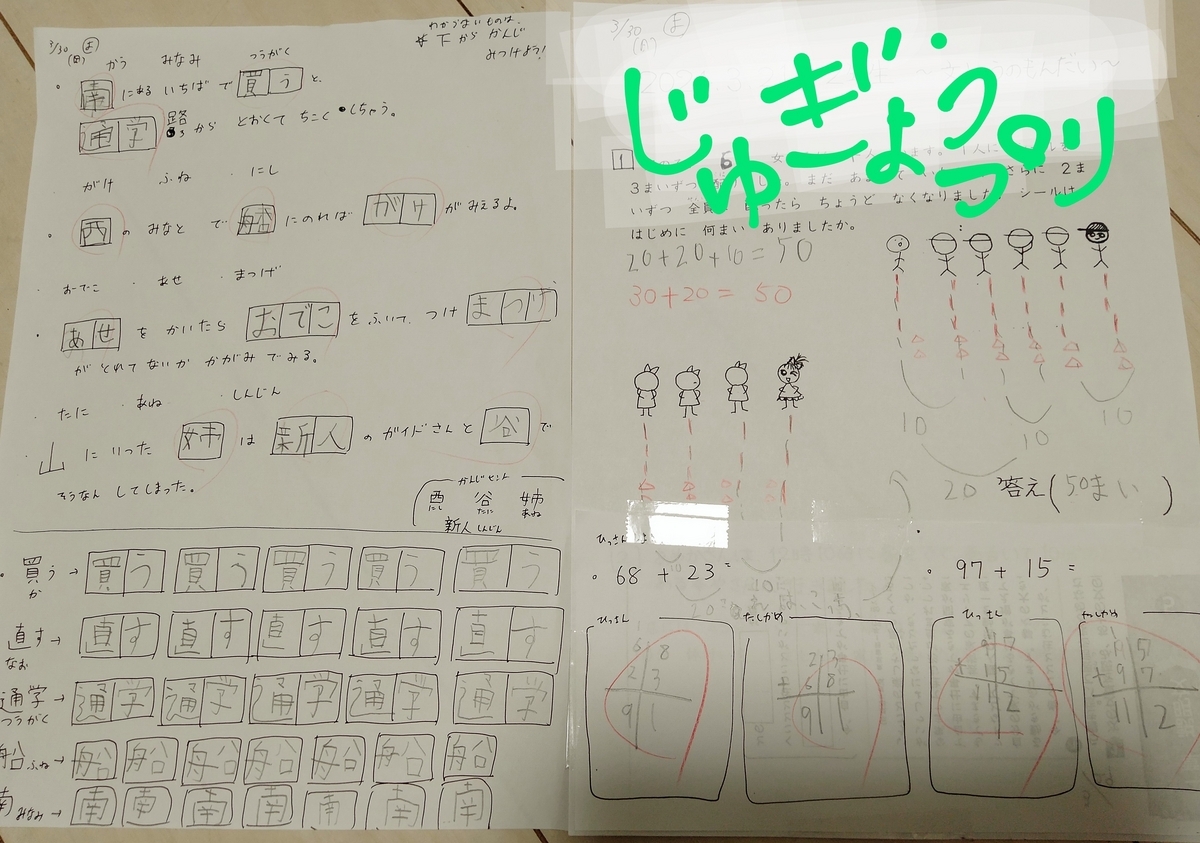 3/30
(日)
よ
わからないものは、
*下から かんじ
みつけよう!
かう みなみ つうがく
南にあるいちばで買うと、
通学路から とおくて ちこくしちゃう。
がけ ふね にし
西のみなとで船にのればがけがみえるよ。
おーでこ あせ まつげ
あせをかいたらおでこをふいて、つけまつげ
がとれてないか かがみでみる。
たに あね しんじん
山にいった姉は新人のガイドさんと谷で
そうなんしてしまった。
かんじヒント
西 谷 姉
にし たに あね
新人 しんじん
買う→ 買う 買う 買う 買う 買う
か
直す→ 直す 直す 直す 直す 直す
なお
通学→ 通学 通学 通学 通学 通学
つうがく
船ふね→ 船 船 船 船 船 船 船
南みなみ→ 南 南 南 南 南 南 南
3/30
(日)
よ
じゅぎょう
プリ
1
3まいずつ
さらに 2ま
いずつ 全員
ったら ちょうど なくなりました。シールは
はじめに 何まい ありましたか。
20+20+10=50
30+20=50
10 10 10
20 答え(50まい)
68+23=
97+15=
ひっさん たしかめ
68
23
91
23
+68
91
ひっさん たしかめ
97
+15
112
15
+97
112